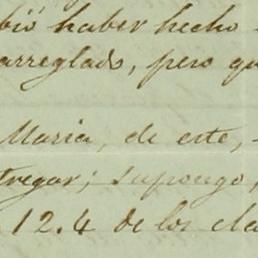 bió haber hecho
arreglado, pero qu
Maria, de este,
tregar; supongo,
12.4 de los cla